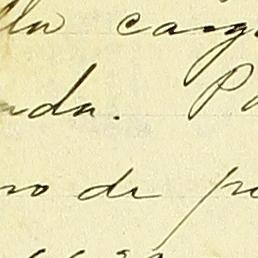 lla carg
nda. P
ro de pe